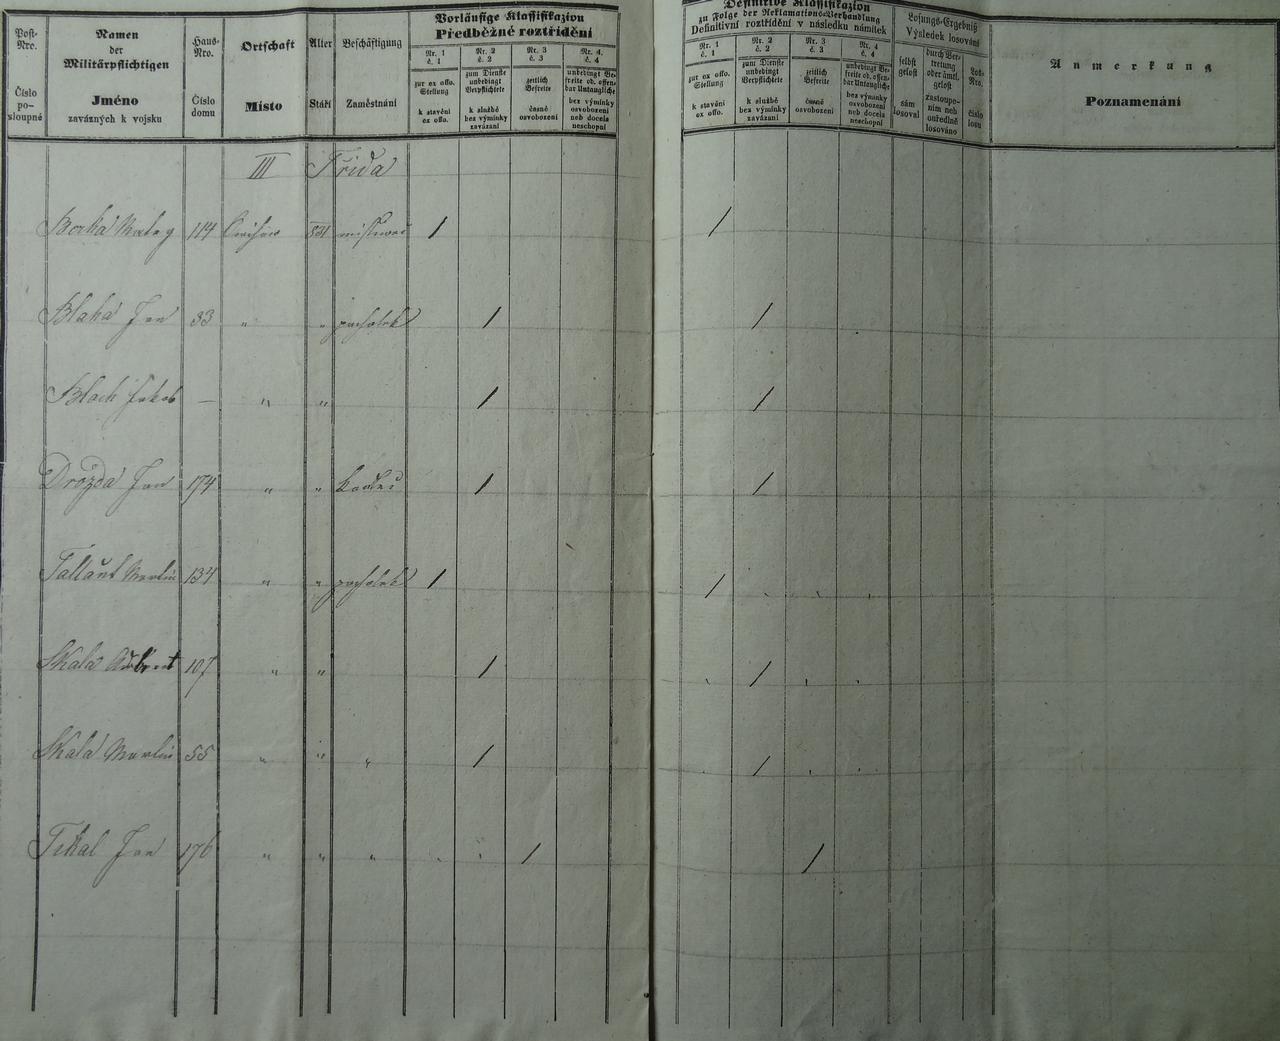 Post-Nro.
Číslo po-sloupné
Namen
der
Militärpflichtigen
Jméno
zavázných k vojsku
Haus-Nro.
Číslo domu
Ortschaft
Místo
Alter
Stáří
Beschäftigung
Zaměstnání
Vorläufige Klassifikazion
Předběžné roztřídění
Nr. 1
č. 1
zur ex offo. Stellung
k stavění ex offo.
Nr. 2
č. 2
zum Dienste unbedingt Verpflichtete
k službě bez výminky zavázaní
Nr. 3
č. 3
zeitlich Befreite
časně osvobození
Nr. 4.
č. 4
unbedingt Befreite od. offenbar Untaugliche
bez výminky osvobození neb docela neschopní
Definitive Klassifikazion
zu Folge der Reklamations-Verhandlung
Definitivní roztřídění v následku námitek
Nr. 1
č. 1
zur ex offo. Stellung
k stavění ex offo.
Nr. 2
č. 2
zum Dienste unbedingt Verpflichtete
k službě bez výminky zavázaní
Nr. 3
č. 3
zeitlich Befreite
časně osvobození
Nr. 4
č. 4
unbedingt Befreite od. offenbar Untaugliche
bez výminky osvobození neb docela neschopní
Losungs-Ergebniß
Výsledek losování
selbst gelost
sám losoval
durch Vertretung oder ämtl. gelost
zastoupením neb ouředlně losováno
Los-Nro.
číslo losu
Anmerkung
Poznamenání
III Třída
114 1 1
Blaha Jan 33 " " pacholek 1 1
Blach Jakob — " " 1 1
Drozda Jan 174 " " 1 1
Martin 134 " " pacholek 1 1
Skala 107 " " 1 1
Skala Martin 55 " " " 1 1
Tikal Jan 176 " " " 1 1